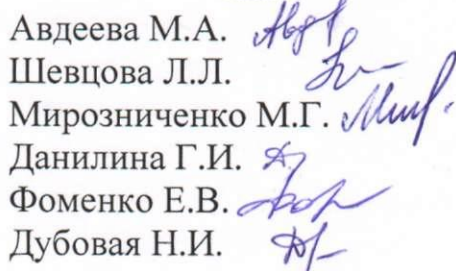 Авдеева М.А.
Шевцова Л.Л.
Мирозниченко М.Г.
Данилина Г.И.
Фоменко Е.В.
Дубовая Н.И.